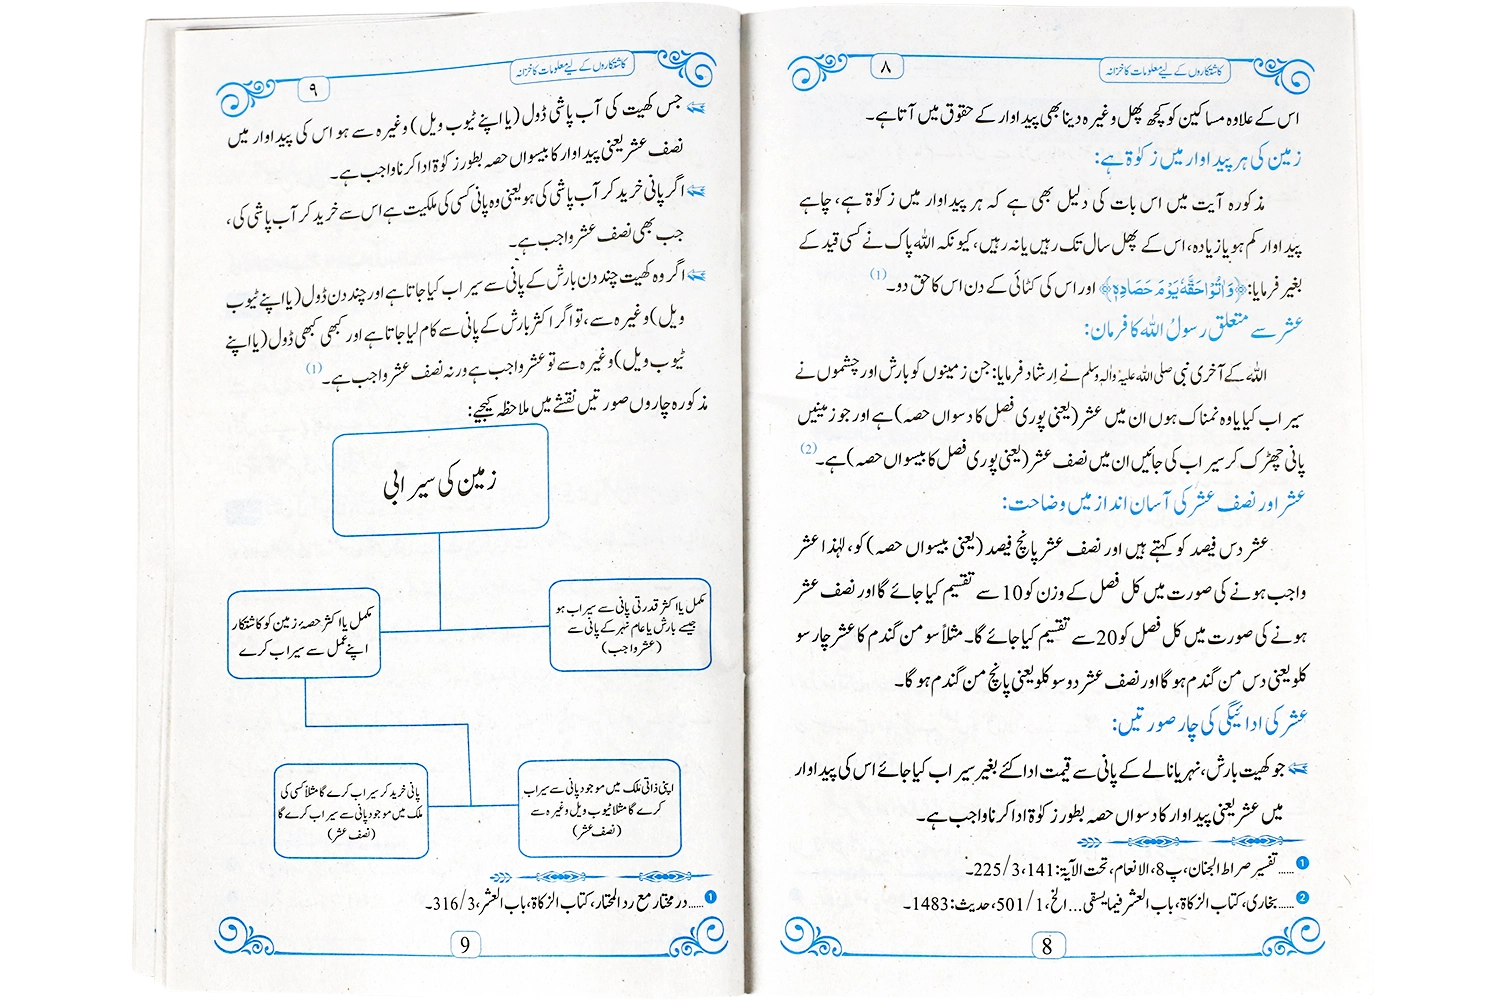 کاشتکاروں کے لیے معلومات کا خزانہ
۸
اس کے علاوہ مساکین کو کچھ پھل وغیرہ دینا بھی پیداوار کے حقوق میں آتا ہے۔
زمین کی ہر پیداوار میں زکوٰۃ ہے:
مذکورہ آیت میں اس بات کی دلیل بھی ہے کہ ہر پیداوار میں زکوٰۃ ہے، چاہے
پیداوار کم ہو یا زیادہ، اس کے پھل سال تک رہیں یا نہ رہیں، کیونکہ اللہ پاک نے کسی قید کے
بغیر فرمایا: ﴿وَاٰتُوْا حَقَّهٗ یَوْمَ حَصَادِهٖ﴾ اور اس کی کٹائی کے دن اس کا حق دو۔(1)
عشر سے متعلق رسولُ اللہ کا فرمان:
اللہ کے آخری نبی صلی اللہ علیہ واٰلہٖ وسلم نے ارشاد فرمایا: جن زمینوں کو بارش اور چشموں نے
سیراب کیا یا وہ نمناک ہوں ان میں عشر (یعنی پوری فصل کا دسواں حصہ) ہے اور جو زمینیں
پانی چھڑک کر سیراب کی جائیں ان میں نصف عشر (یعنی پوری فصل کا بیسواں حصہ) ہے۔(2)
عشر اور نصف عشر کی آسان انداز میں وضاحت:
عشر دس فیصد کو کہتے ہیں اور نصف عشر پانچ فیصد (یعنی بیسواں حصہ) کو، لہٰذا عشر
واجب ہونے کی صورت میں کل فصل کے وزن کو 10 سے تقسیم کیا جائے گا اور نصف عشر
ہونے کی صورت میں کل فصل کو 20 سے تقسیم کیا جائے گا۔ مثلاً سو من گندم کا عشر چار سو
کلو یعنی دس من گندم ہو گا اور نصف عشر دو سو کلو یعنی پانچ من گندم ہو گا۔
عشر کی ادائیگی کی چار صورتیں:
جو کھیت بارش، نہر یا نالے کے پانی سے قیمت ادا کئے بغیر سیراب کیا جائے اس کی پیداوار
میں عشر یعنی پیداوار کا دسواں حصہ بطور زکوٰۃ ادا کرنا واجب ہے۔
1 ..... تفسیر صراط الجنان، پ 8، الانعام، تحت الآیۃ: 141، 3/225۔
2 ..... بخاری، کتاب الزکاۃ، باب العشر فیما یسقی... الخ، 1/501، حدیث: 1483۔
8
کاشتکاروں کے لیے معلومات کا خزانہ
۹
جس کھیت کی آب پاشی ڈول (یا اپنے ٹیوب ویل) وغیرہ سے ہو اس کی پیداوار میں
نصف عشر یعنی پیداوار کا بیسواں حصہ بطور زکوٰۃ ادا کرنا واجب ہے۔
اگر پانی خرید کر آب پاشی کی ہو یعنی وہ پانی کسی کی ملکیت ہے اس سے خرید کر آب پاشی کی،
جب بھی نصف عشر واجب ہے۔
اگر وہ کھیت چند دن بارش کے پانی سے سیراب کیا جاتا ہے اور چند دن ڈول (یا اپنے ٹیوب
ویل) وغیرہ سے، تو اگر اکثر بارش کے پانی سے کام لیا جاتا ہے اور کبھی کبھی ڈول (یا اپنے
ٹیوب ویل) وغیرہ سے تو عشر واجب ہے ورنہ نصف عشر واجب ہے۔(1)
مذکورہ چاروں صورتیں نقشے میں ملاحظہ کیجیے:
زمین کی سیرابی
مکمل یا اکثر قدرتی پانی سے سیراب ہو
جیسے بارش یا عام نہر کے پانی سے
(عشر واجب)
مکمل یا اکثر حصۂ زمین کو کاشتکار
اپنے عمل سے سیراب کرے
اپنی ذاتی ملک میں موجود پانی سے سیراب
کرے گا مثلا ٹیوب ویل وغیرہ سے
(نصف عشر)
پانی خرید کر سیراب کرے گا مثلاً کسی کی
ملک میں موجود پانی سے سیراب کرے گا
(نصف عشر)
1 ..... در مختار مع رد المحتار، کتاب الزکاۃ، باب العشر، 3/316۔
9